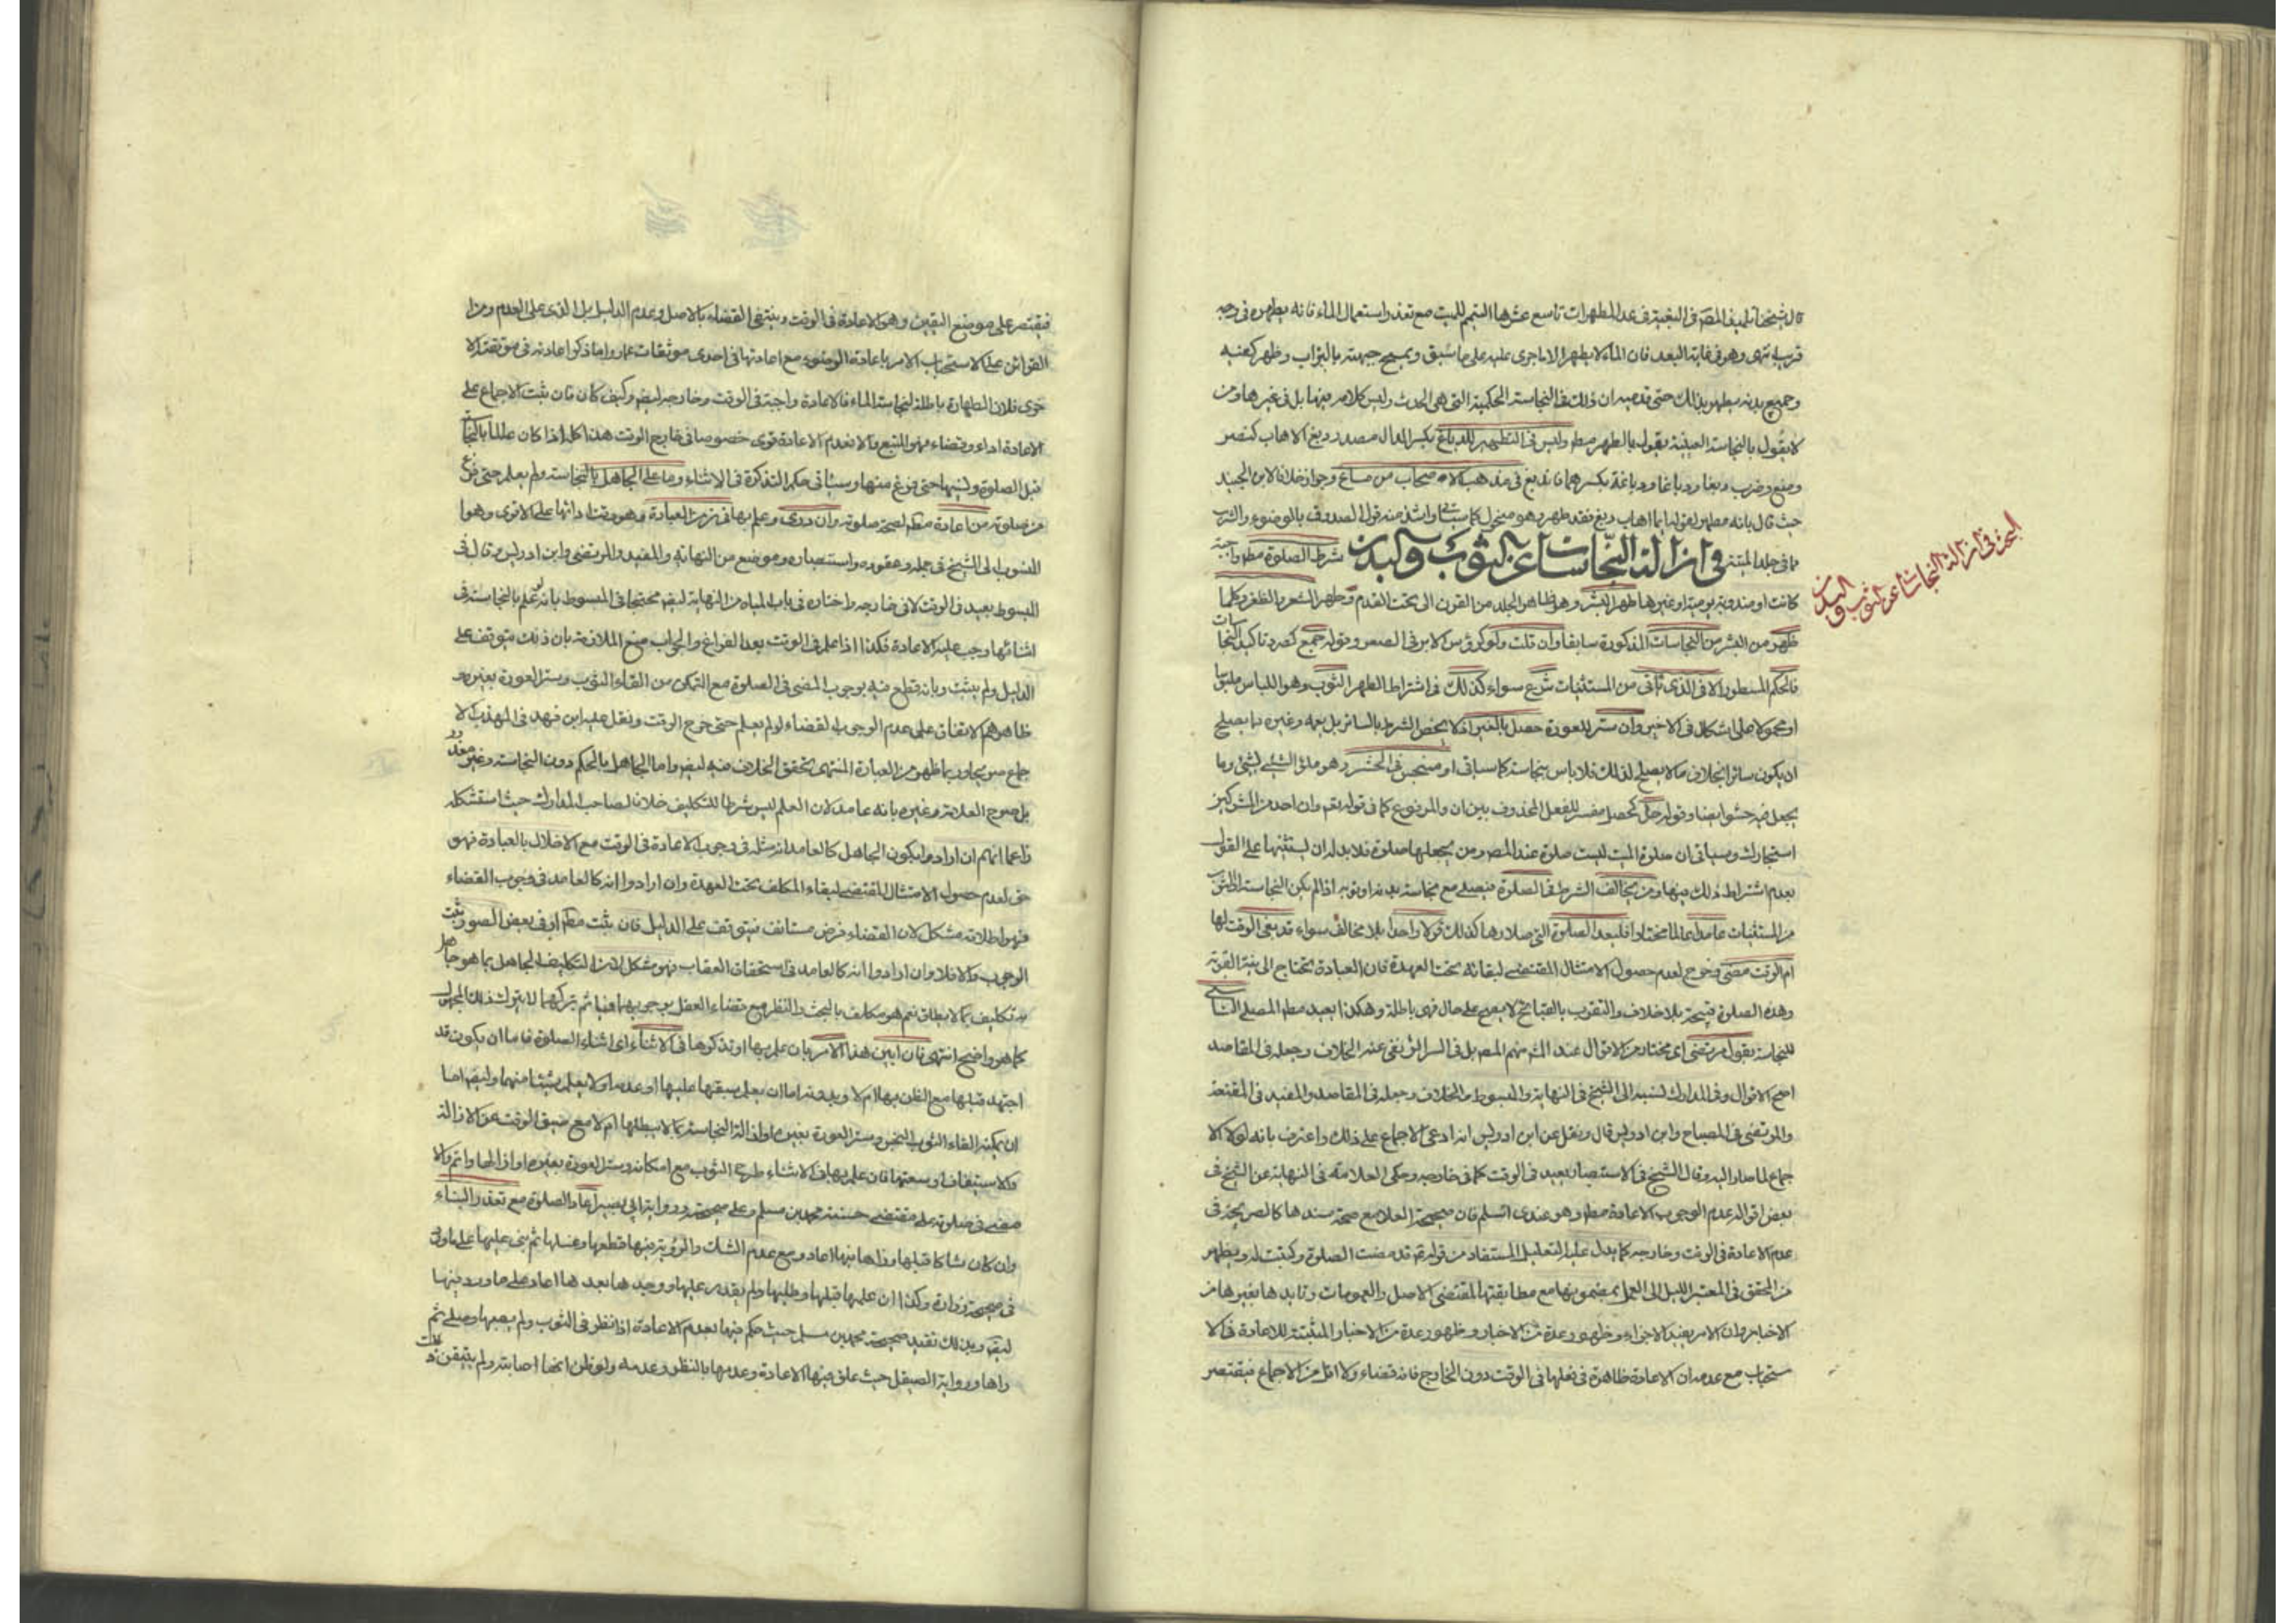 قال شيخنا تلميذ المصّ فى البغية فى عد المطهرات تاسع عشرها التيمم للميت مع تعذر استعمال الماء فانه يطهره فى وجه
قريب انتهى وهو فى غاية البعد فان الماء لا يطهر الا ما جرى عليه على ما سبق ويمسح جبهته بالتراب وظهر كفيه
وجميع بدنه يطهر بذلك حتى قدميه ان ذلك فى النجاسة الحكمية التى هى الحدث وليس كلامه فيها بل فى غيرها ومن
لا يقول بالنجاسة العينية يقول بالطهر مط وليس فى التطهير للدباغ بكسر الدال مصدر دبغ الاهاب كنصر
ومنع وضرب دبغا ودباغا ودباغة بكسرهما فاندبغ فى مذهب الاصحاب من مساغ وجواز خلافا لابن الجنيد
حيث قال بانه مطهر لقوله ايما اهاب دبغ فقد طهر وهو منحول كما سبق واشذ منه قول الصدوق بالوضوء والشرب
مما فى جلد الميتة فى ازالة النجاسات عن الثوب والبدن شرط الصلوة مط واجبة
كانت او مندوبة يومية او غيرها طهر البشر وهو ظاهر الجلد من القرن الى تحت القدم وطهر الشعر والظفر وكلما
ظهر من البشر من النجاسات المذكورة سابقا وان قلت ولو كرؤس الابر فى الصغر وقوله جمع كصرد تاكيد النجاسات
فالحكم المسطور الا فى الذى ياتى من المستثنيات شرع سواء كذلك فى اشتراط الطهر الثوب وهو اللباس ملبوسا
او محمولا على اشكال فى الاخير وان ستر للعورة حصل بالغير اذ لا يختص الشرط بالساتر بل يعمه وغيره مما يصلح
ان يكون ساترا بخلاف ما لا يصلح لذلك فلا باس بنجاسته كما سياتى او منحبس فى الحشر وهو ملؤ الشيئ لشئ وما
يجعل فيه حشو ايضا وقوله حلّ كحصل مفسر للفعل المحذوف بين ان والمرفوع كما فى قوله تعم وان احد من المشركين
استجارك وسياتى ان صلوة الميت ليست صلوة عند المصّ ومن يجعلها صلوة فلا بد له ان يستثنيها على القول
بعدم اشتراط ذلك فيها ومن يخالف الشرط فى الصلوة فيصلى مع نجاسة بدنه او ثوبه اذا لم يكن النجاسة الثوب
من المستثنيات عامدا عالما مختارا فليعد الصلوة التى صلاها كذلك قولا واحدا بلا مخالف سواء قد بقى الوقت لها
ام الوقت مضى وخرج لعدم حصول الامتثال المقتضى لبقائه تحت العهدة فان العبادة تحتاج الى نية القربة
وهذه الصلوة قبيحة بلا خلاف والتقرب بالقبائح لا يصح على حال فهى باطلة وهكذا يعيد مط المصلى الناسى
للنجاسة بقول مرتضى اى مختار من الاقوال عند الشّ منهم المصّ بل فى السرائر نفى عنه الخلاف وجعله فى المقاصد
اصح الاقوال وفى المدارك نسبه الى الشيخ فى النهاية والمبسوط والخلاف وجعله فى المقاصد والمفيد فى المقنعة
والمرتضى فى المصباح وابن ادريس قال ونقل عن ابن ادريس انه ادعى الاجماع على ذلك واعترف بانه لولا الا
جماع لما صار اليه وقال الشيخ فى الاستبصار يعيد فى الوقت كما فى خارجه وحكى العلامة فى النهاية عن الشيخ فى
بعض اقواله عدم الوجوب الاعادة مط وهو عندى اسلم فان صحيحة العلا مع صحة سندها كالصريحة فى
عدم الاعادة فى الوقت وخارجه كما يدل عليه التعليل المستفاد من قوله تم قد مضت الصلوة وكتبت له ويظهر
من المحقق فى المعتبر الميل الى العمل بمضمونها مع مطابقتها لمقتضى الاصل والعمومات وتايدها بغيرها من
الاخبار وان الامر يفيد الاجزاء وظهور عدة من الاخبار وظهور عدة من الاخبار المثبتة للاعادة فى الا
ستحباب مع عدم ان الاعادة ظاهرة فى فعلها فى الوقت دون الخارج فانه قضاء ولا اقل من الاجماع فيقتصر
البحث فى ازالة النجاسات عن الثوب و
البدن
فيقتصر على موضع اليقين وهو الاعادة فى الوقت وينتفى القضاء بالاصل وعدم الدليل بل الذى على العدم ومن
القرائن على الاستحباب الامر باعادة الوضوء مع اعادتها فى احدى موثقات عمار واما ذكر اعادته فى موثقته الا
خرى فلان الطهارة باطلة لنجاسة الماء فالاعادة واجبة فى الوقت وخارجه ايضا وكيف كان فان ثبت الاجماع على
الاعادة اداء وقضاء فهو المتبع والا فعدم الاعادة قوى خصوصا فى خارج الوقت هذا كله اذا كان عالما بالنجاسة
قبل الصلوة ونسيها حتى فرغ منها وسياتى حكم التذكرة فى الاثناء وما على الجاهل بالنجاسة ولم يعلم حتى فرغ
من صلوته من اعادة مط لصحة صلوته وان درى وعلم بها فى زمن العبادة وهو وقت ادائها على الاقوى وهو ا
لمنسوب الى الشيخ فى جمله وعقوده واستبصاره وموضع من النهاية والمفيد والمرتضى وابن ادريس وقال فى
المبسوط يعيد فى الوقت لا فى خارجه واختاره فى باب المياه من النهاية ايضا محتجا فى المبسوط بانه لو علم بالنجاسة فى
اثنائها وجب عليه الاعادة فكذا اذا علم فى الوقت بعد الفراغ والجواب منع الملازمة بان ذلك يتوقف على
الدليل ولم يثبت وبانه قطع فيه بوجوب المضى فى الصلوة مع التمكن من القاء الثوب وستر العورة بغيره و
ظاهرهم الاتفاق على عدم الوجوب القضاء لو لم يعلم حتى خرج الوقت ونقل عليه ابن فهد فى المهذب الا
جماع ويحاور بما ظهر من العبارة المنتهى تحقق الخلاف فيه ايضا واما الجاهل بالحكم دون النجاسة وغير معذور
بل صرح العلامة وغيره بانه عامد لان العلم ليس شرطا للتكليف خلافا لصاحب المدارك حيث استشكله
زاعما انهم ان ارادوا بكون الجاهل كالعامد انه مثله فى وجوب الاعادة فى الوقت مع الاخلال بالعبادة فهو
حق لعدم حصول الامتثال المقتضى لبقاء المكلف تحت العهدة وان ارادوا انه كالعامد فى وجوب القضاء
فهو اطلاقه مشكل لان القضاء فرض مستانف فيتوقف على الدليل فان ثبت مط او فى بعض الصور ثبت
الوجوب والا فلا وان ارادوا انه كالعامد فى استحقاق العقاب فهو مشكل لان التكليف الجاهل بما هو جاهل
به تكليف بما لا يطاق نعم هو مكلف بالبحث والنظر مع قضاء العقل بوجوبهما فياثم بتركهما لا بترك ذلك المجهول
كما هو واضح انتهى فان ابين هذا الامر بان علم بها او تذكرها فى الاثناء اى اثناء الصلوة فاما ان يكون قد
اجتهد قبلها مع الظن بها ام لا وبدونه اما ان يعلم سبقها عليها او عدمه او لا يعلم شيئا منهما وايضا اما
ان يمكنه القاء الثوب النجس وستر العورة بغيره او ازالة النجاسة بما لا يبطلها ام لا مع ضيق الوقت عن الازالة
والاستيناف او سعتها فان علم بها فى الاثناء طرح الثوب مع امكانه وستر العورة بغيره او ازالها واتم والا
مضى فى صلوته على مقتضى حسنة محمد بن مسلم وعلى صحيحته ورواية ابى بصير اعاد الصلوة مع تعذر البناء
وان كان شاكا قبلها وراها فيها اعاد ومع عدم الشك والرؤية فيها قطعها وغسلها ثم بنى عليها على ما فى
فى صحيحة زرارة وكذا ان علمها قبلها وطلبها ولم يقدر عليها ووجدها بعدها اعاد على ما ورد فيها
ايضا وبذلك تقيد صحيحة محمد بن مسلم حيث حكم فيها بعدم الاعادة اذا نظر فى الثوب ولم يصبها وصلى ثم
راها ورواية الصيقل حيث علق فيها الاعادة وعدمها بالنظر وعدمه ولو ظن انها اصابته ولم يتيقن